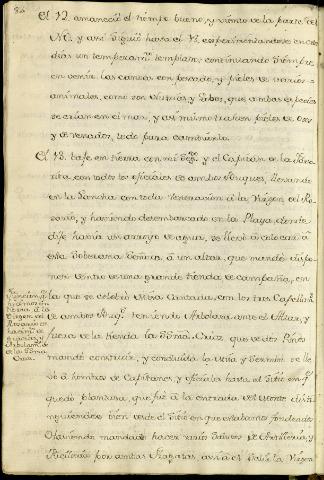 El 12. amaneció el tiempo bueno, y viento de la parte del
N. y así siguió hasta el 17. experimentandose en estos
dias un temperamto templado; continuando siempre
en venir las canoas con pescado, y pieles de varios
animales, como son Nutrias, y Lobos, que ambas especies
se crian en el mar, y asi mismo trahen pieles de Osos
y de venados, todo para cambiarlo.
El 18. baje en tierra con mi y el Capitan en la Favo-
rita con todos los oficiales de ambos Buques, llevando
en la Lancha con toda veneracion á la Virgen del Ro-
sario, y haviendo desembarcado en la Playa, donde
dije havia un arroyo de agua, se llevó á colocar á
esta Soberana Señora, á un altar, que mandé dispo-
ner dentro de una grande tienda de campaña, en
la que se celebró Misa Cantada, con los tres Capellanes
de ambos Buqs teniendo Arbolada ante el Altar, y
fuera de la tienda la Santa Cruz, que de dos Pinos
mandé construir, y concluida la Misa y Sermon se lle-
vó á hombros de Capitanes, y oficiales hasta el Sitio en q.
quedó plantada, que fué á la entrada del Puerto disti-
nguiendose bien desde el Sitio en que estabamos fondeados
Haviendo mandado hacer varias Salvas de Artilleria, y
fusileria por ambas Fragatas, assi á el salir la Virgen
en tierra á la
Virgen del
Rosario